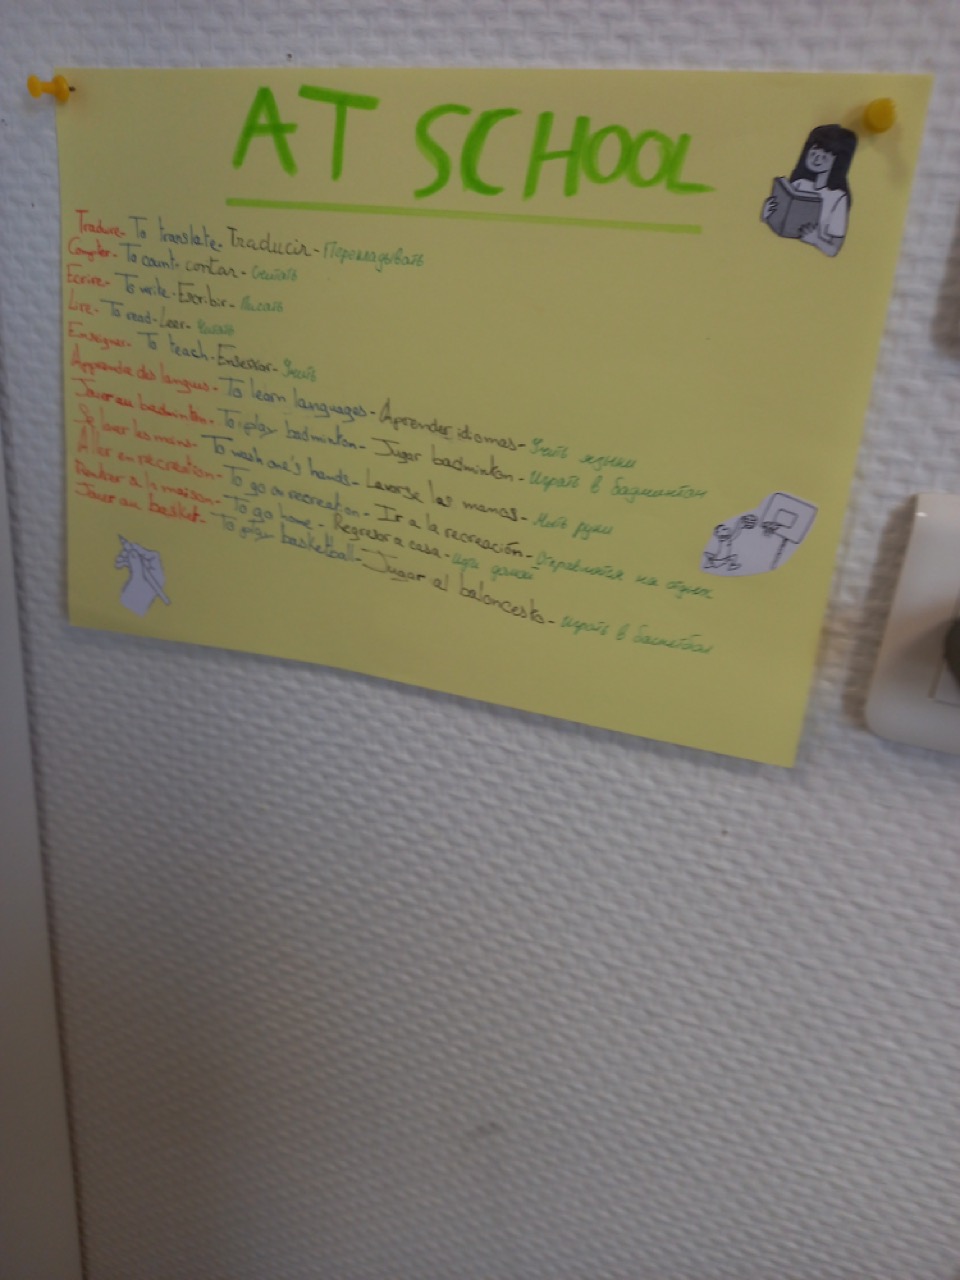 AT SCHOOL
Traduire - To translate - Traducir - Перекладывать
Compter - To count - contar - Считать
Ecrire - To write - Escribir - Писать
Lire - To read - Leer - Читать
Enseigner - To teach - Enseñar - Учить
Apprendre des langues - To learn languages - Aprender idiomas - Учить языки
Jouer au badminton - To play badminton - Jugar badminton - Играть в бадминтон
Se laver les mains - To wash one's hands - Laverse las manos - Мыть руки
Aller en recreation - To go on recreation - Ir a la recreación - Отправлятся на отдых
Rentrer a la maison - To go home - Regresor a casa - Иди домой
Jouer au basket - To play basketball - Jugar al baloncesto - Играть в баскетбол